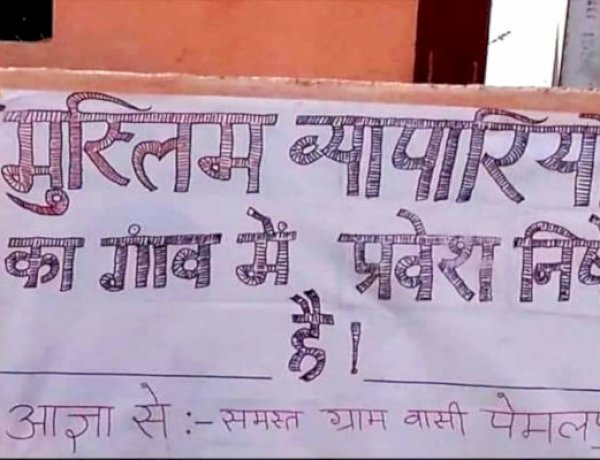 मुस्लिम व्यापारियों
का गांव में प्रवेश निषे
है!
आज्ञा से :- समस्त ग्राम वासी पेमल